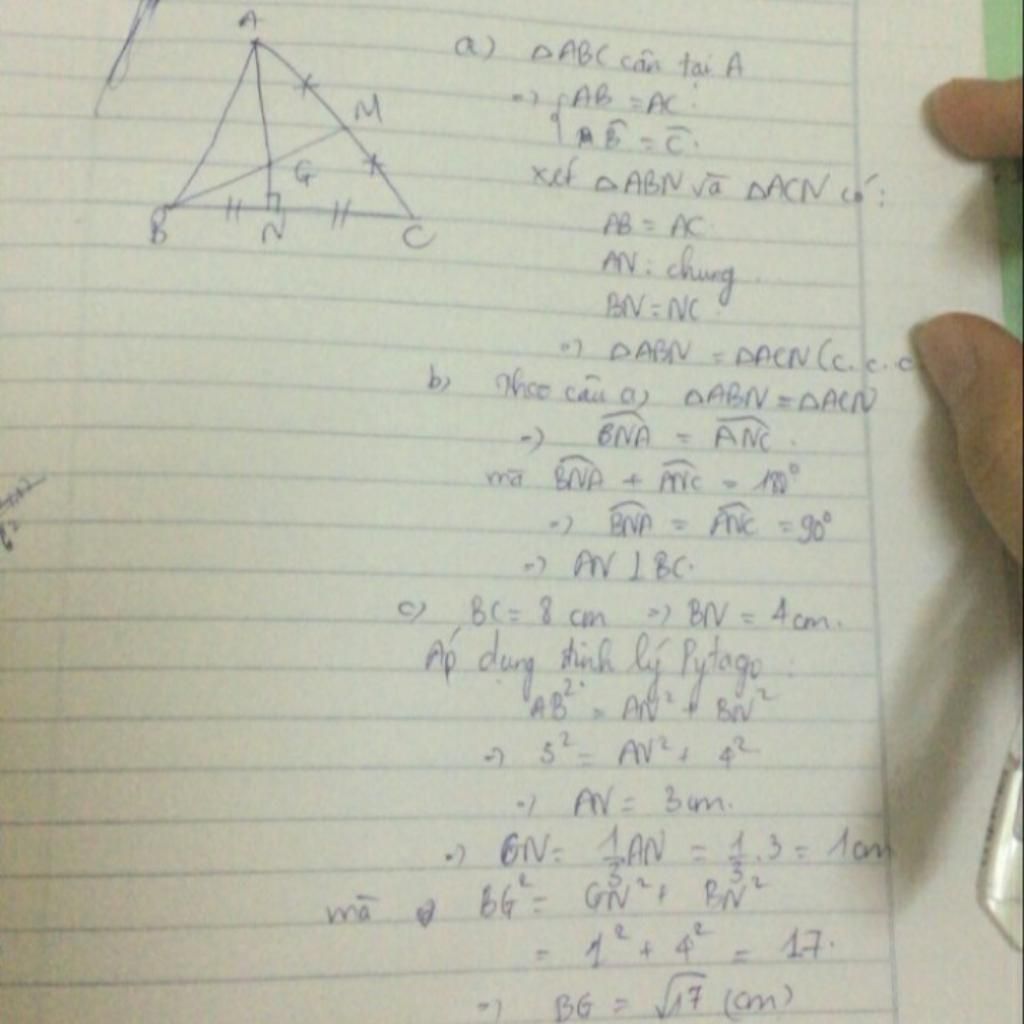 A
M
G
B
N
C
a) ΔABC cân tại A
=> { AB = AC
B̂ = Ĉ.
xét ΔABN và ΔACN có:
AB = AC
AN: chung
BN = NC
=> ΔABN = ΔACN (c.c.c
b) Theo câu a) ΔABN = ΔACN
=> BNA = ANC.
mà BNA + ANC = 180°
=> BNA = ANC = 90°
=> AN ⊥ BC.
c) BC = 8 cm => BN = 4 cm.
Áp dụng định lý Pytago:
AB² = AN² + BN²
=> 5² = AN² + 4²
=> AN = 3 cm.
=> GN = 1/3 AN = 1/3 . 3 = 1 cm
mà BG² = GN² + BN²
= 1² + 4² = 17.
=> BG = √17 (cm)